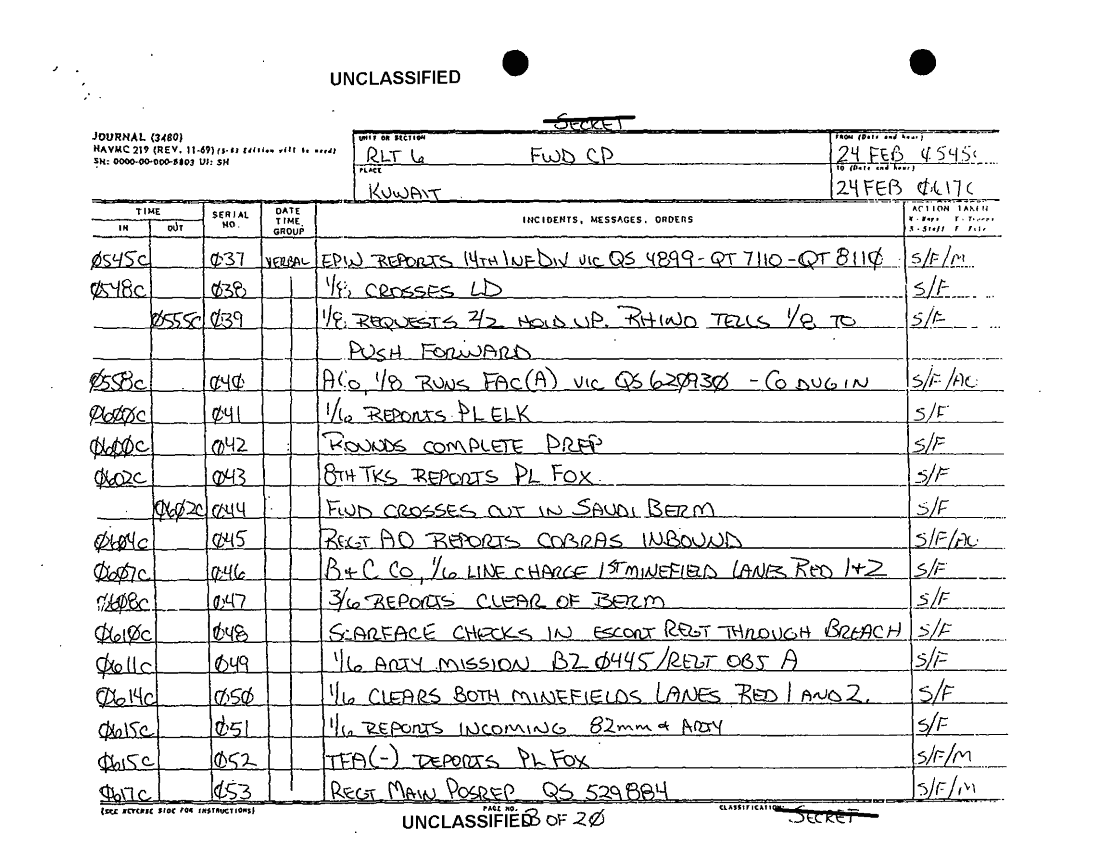 UNCLASSIFIED
SECRET
JOURNAL (3480)
NAVMC 219 (REV. 11-69) (5-63 Edition will be used)
SN: 0000-00-000-5803 UI: SH
UNIT OR SECTION
RLT 6 FWD CP
PLACE
KUWAIT
FROM (Date and hour)
24 FEB 0545C
TO (Date and hour)
24 FEB 0617C
TIME
IN OUT
SERIAL NO.
DATE TIME GROUP
INCIDENTS, MESSAGES, ORDERS
ACTION TAKEN
M - Maps T - Troops
S - Staff F File
0545C 037 VERBAL EPW REPORTS 14TH INF DIV VIC QS 4899-QT 7110-QT 8110 S/F/M
0548C 038 1/8 CROSSES LD S/F
0555C 039 1/8 REQUESTS 2/2 HOLD UP. RHINO TELLS 1/8 TO S/F
PUSH FORWARD
0558C 040 ACo, 1/8 RUNS FAC(A) VIC QS 620930 - CO DUG IN S/F/AC
0600C 041 1/6 REPORTS PL ELK S/F
0600C 042 ROUNDS COMPLETE PREP S/F
0602C 043 8TH TKS REPORTS PL FOX S/F
0602C 044 FWD CROSSES CUT IN SAUDI BERM S/F
0604C 045 REGT AO REPORTS COBRAS INBOUND S/F/AC
0607C 046 B+C CO, 1/6 LINE CHARGE 1ST MINEFIELD LANES RED 1+2 S/F
0608C 047 3/6 REPORTS CLEAR OF BERM S/F
0610C 048 SCARFACE CHECKS IN ESCORT REGT THROUGH BREACH S/F
0611C 049 1/6 ARTY MISSION BZ 0445/REGT OBJ A S/F
0614C 050 1/6 CLEARS BOTH MINEFIELDS LANES RED 1 AND 2. S/F
0615C 051 1/6 REPORTS INCOMING 82mm + ARTY S/F
0615C 052 TFA(-) REPORTS PL FOX S/F/M
0617C 053 REGT MAIN POSREP QS 529884 S/F/M
(SEE REVERSE SIDE FOR INSTRUCTIONS)
PAGE NO.
3 OF 20
CLASSIFICATION
SECRET
UNCLASSIFIED